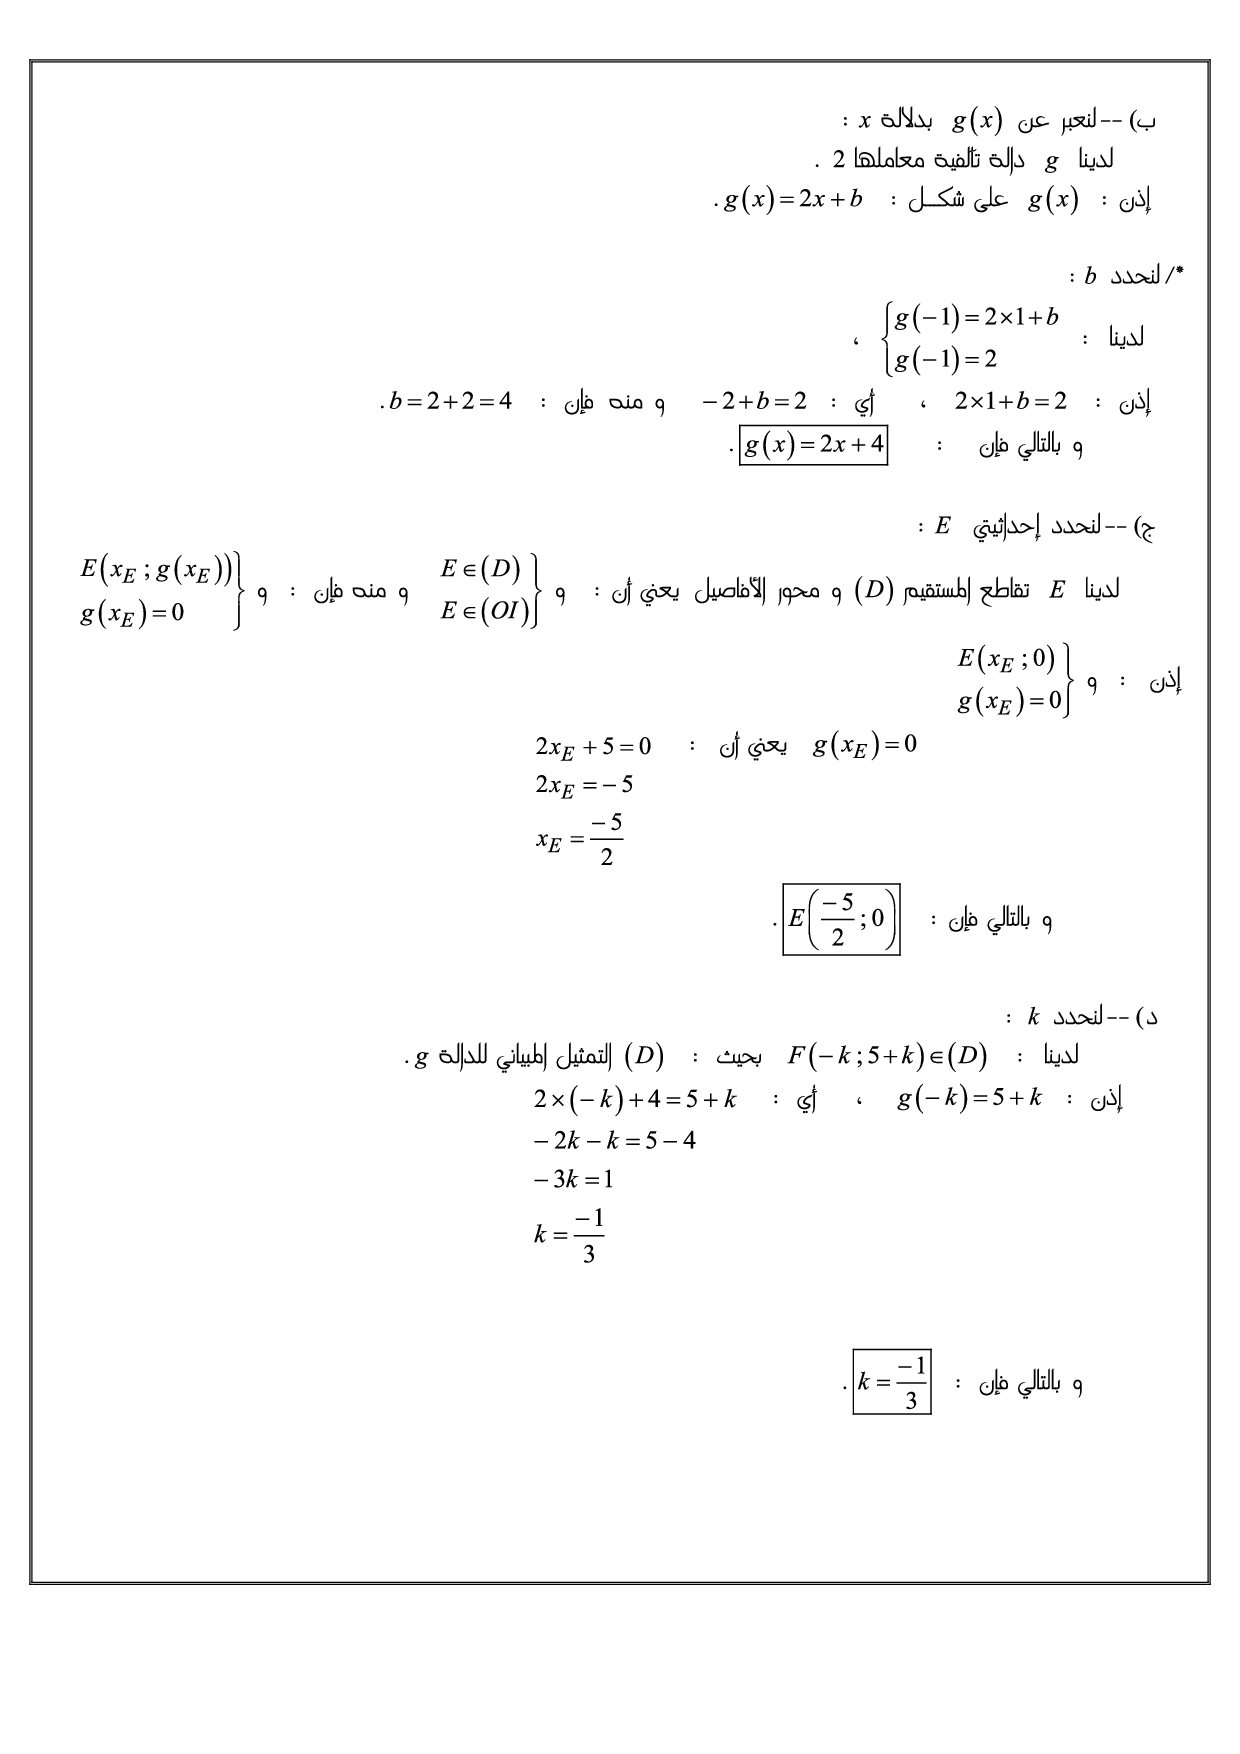 ب) -- لنعبر عن g(x) بدلالة x :
لدينا g دالة تآلفية معاملها 2 .
إذن : g(x) على شكــل : g(x) = 2x + b .
*/ لنحدد b :
لدينا : { g(−1) = 2×1 + b ; g(−1) = 2 ،
إذن : 2×1 + b = 2 ، أي : −2 + b = 2 و منه فإن : b = 2 + 2 = 4 .
و بالتالي فإن : g(x) = 2x + 4 .
ج) -- لنحدد إحداثيتي E :
لدينا E تقاطع المستقيم (D) و محور الأفاصيل يعني أن : و } E ∈ (D) ; E ∈ (OI) و منه فإن : و } E(x_E ; g(x_E)) ; g(x_E) = 0
إذن : و } E(x_E ; 0) ; g(x_E) = 0
g(x_E) = 0 يعني أن : 2x_E + 5 = 0
2x_E = −5
x_E = −5/2
و بالتالي فإن : E(−5/2 ; 0) .
د) -- لنحدد k :
لدينا : F(−k ; 5 + k) ∈ (D) بحيث : (D) التمثيل المبياني للدالة g .
إذن : g(−k) = 5 + k ، أي : 2×(−k) + 4 = 5 + k
−2k − k = 5 − 4
−3k = 1
k = −1/3
و بالتالي فإن : k = −1/3 .